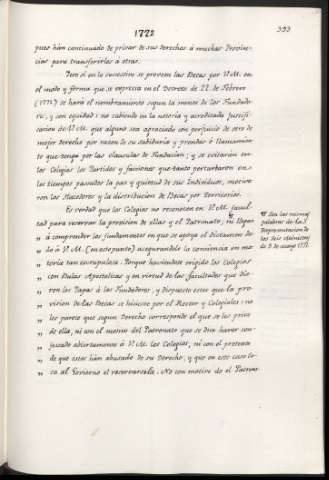 1772
393
pues hán continuado de privar de sus derechos á muchas Provin-
cias para transferirlos á otras.
Pero si en lo succesivo se proveen las Becas por V.M. en
el modo y forma que se expresa en el Decreto de 22. de Febrero
(1771) se hará el nombramiento segun la mente de los Fundado-
res, y con equidad: no cabiendo en la notoria y acreditada Justifi-
cacion de V.M. que alguno sea agraciado con perjuicio de otro de
mejor derecho por razon de su sabiduria y prendas ó llamamien-
to que tenga por las clausulas de Fundacion; y se evitarán en
los Colegios los Partidos y facciones que tanto perturbaron en
los tiempos pasados la paz y quietud de sus Individuos, movie-
ron las Hacedores y la distribucion de Becas por Territorios.
Es verdad que los Colegios no reconocen en V.M. facul-
tad para reservar la provision de ellas y el Patronato; ni llegan
„ á comprender los fundamentos en que se apoya el Dictamen da-
„ do á V.M. (en este punto) asegurandole la conciencia en ma-
„ teria tan escrupulosa. Porque haviendose erigido los Colegios
„ con Bulas Apostolicas y en virtud de las facultades que die-
„ ron los Papas á los Fundadores, y dispuesto estos que la pro-
„ vision de las Becas se hiciese por el Rector y Colegiales: no
„ les parece que segun Derecho corresponde el que se les prive
„ de ella, ni con el motivo del Patronato que se dice haver con-
„ jurado abiertamente á V.M. los Colegios, ni con el pretexto
„ de que estos hán abusado de su Derecho, y que en este caso to-
„ ca al Govierno el reservarsela. No con motivo de el Patro-
Son las mismas
palabras de la
Representacion de
los seis Ministros
de 3 de mayo 1771.